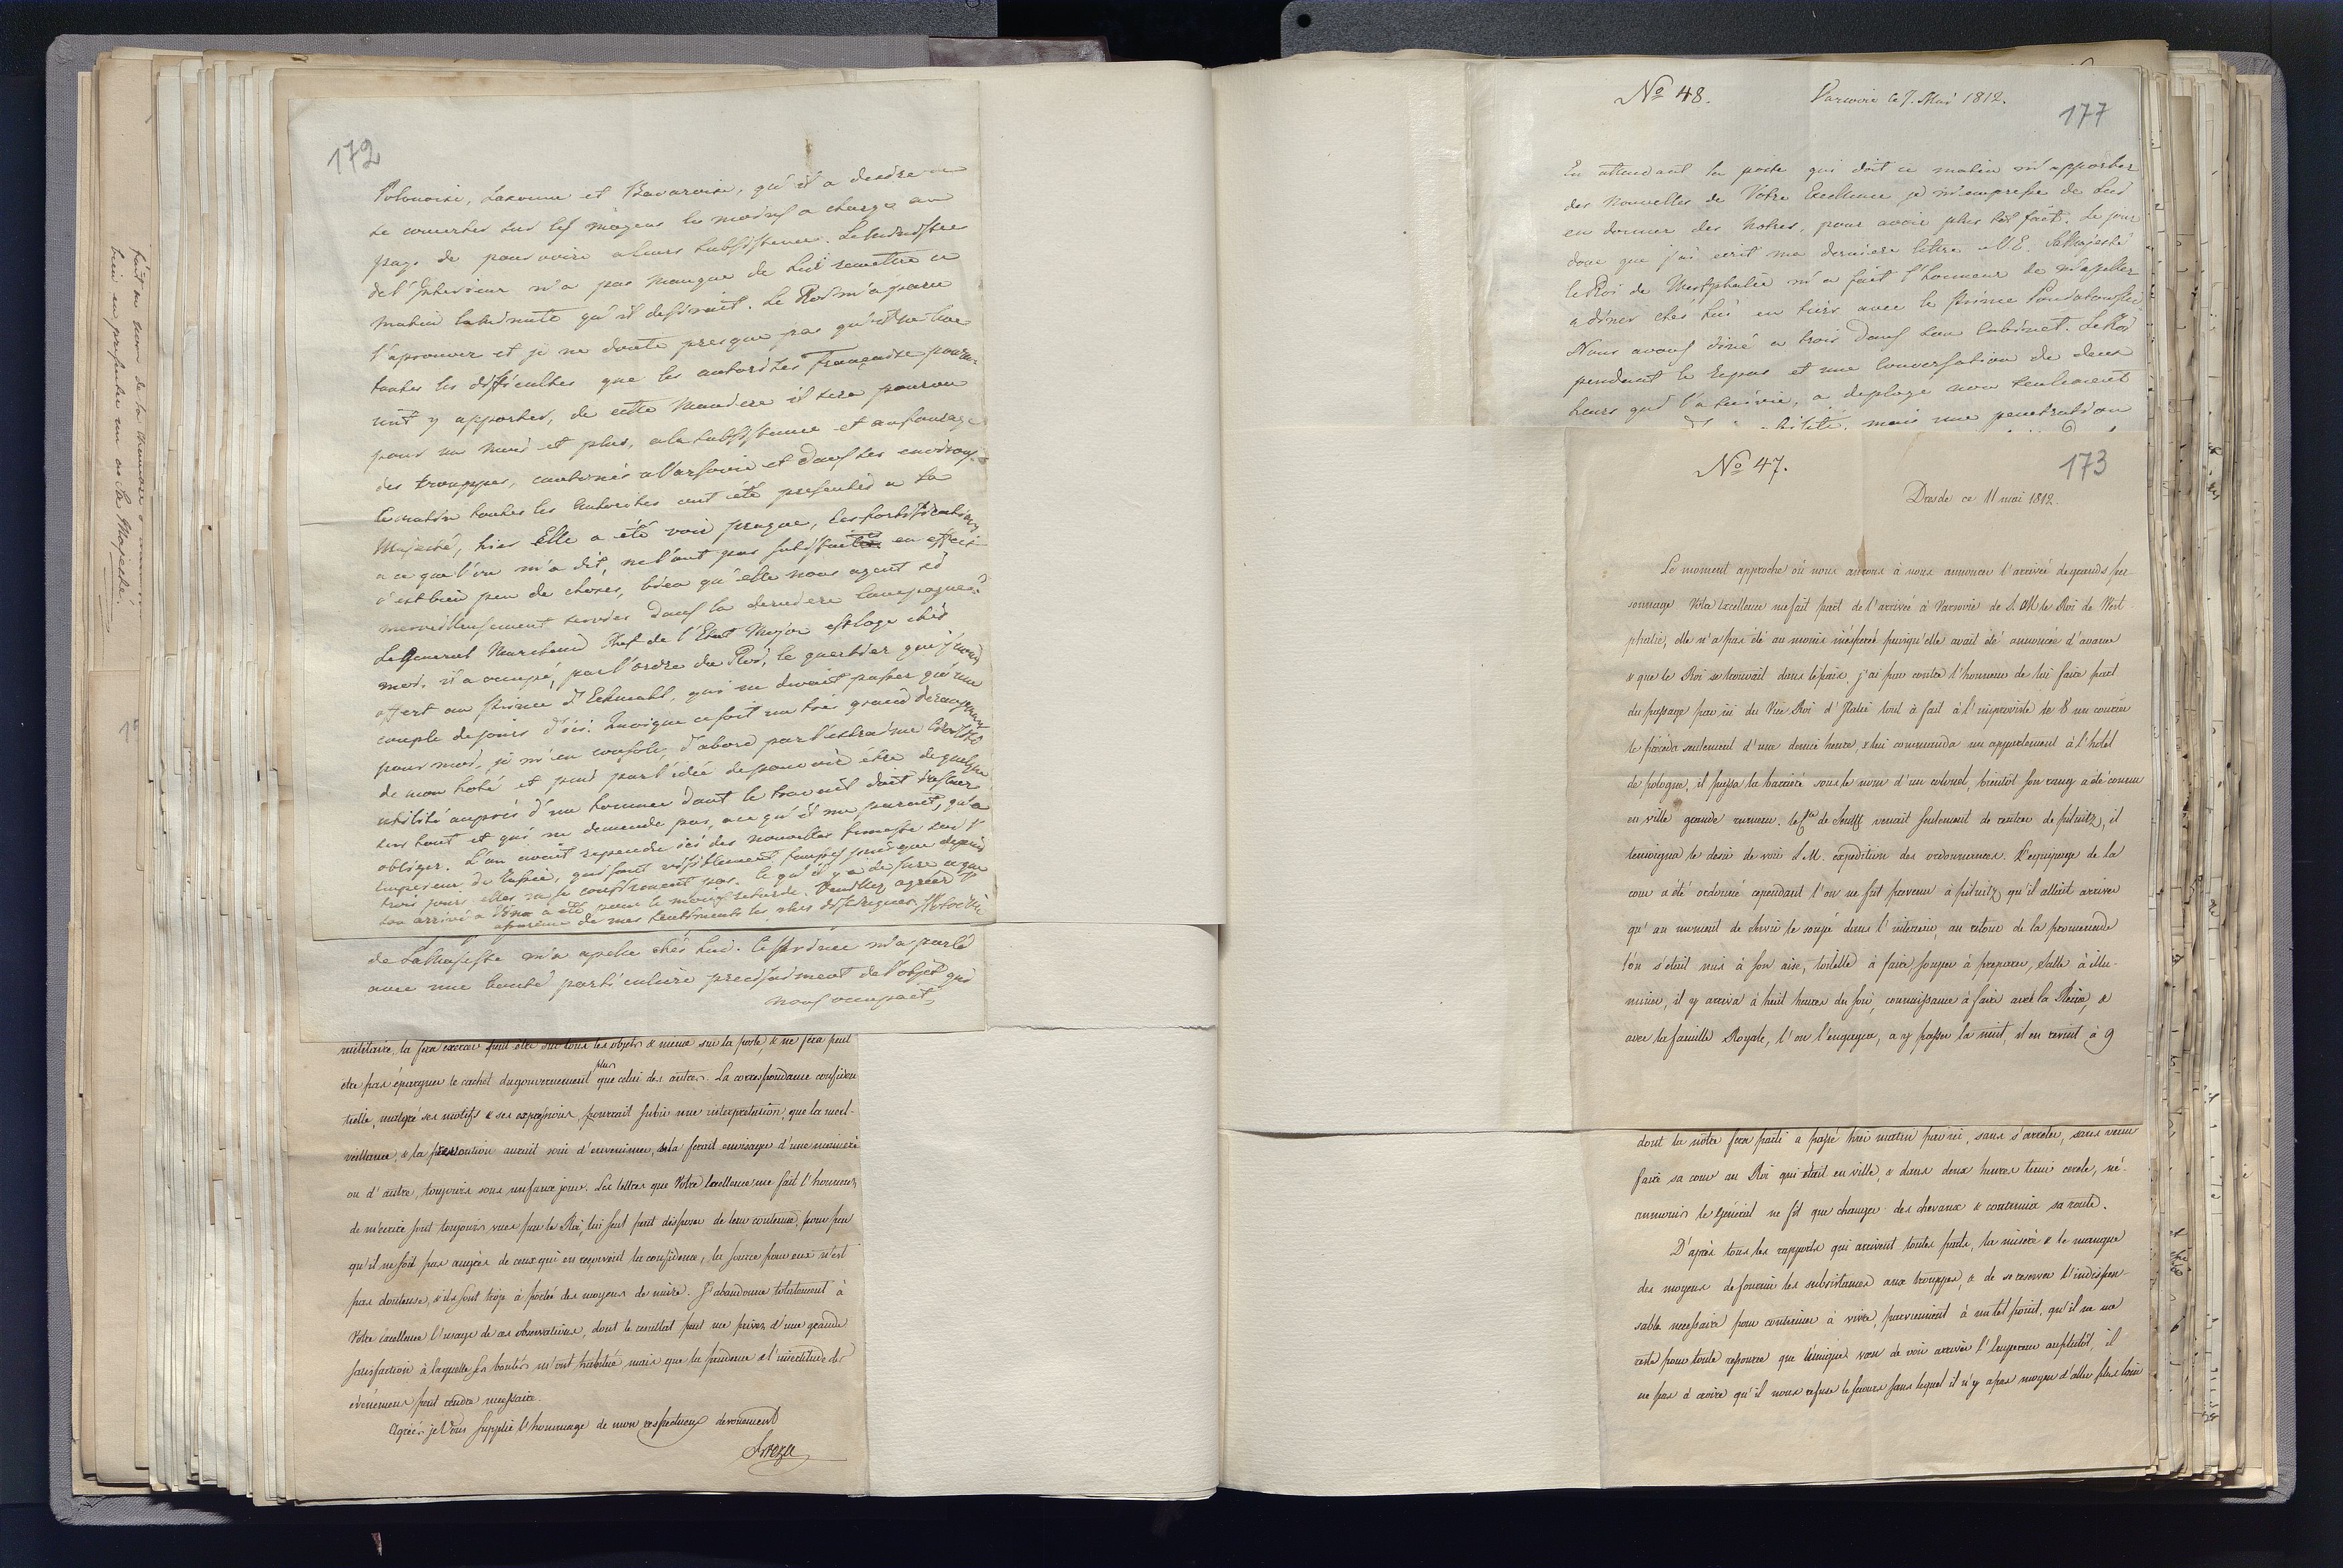 172
Polonoise, Saxonne et Bavaroise, qu'il a desiré
se concerter sur les moyens les moins a charge au
pays de pourvoir a leurs subsistence. Le Ministre
de l'Interieur n'a pas manqué de lui remettre ce
matin la minute qu'il desiroit. Le Roi m'a paru
l'aprouver et je ne doute presque pas qu'il ne leve
toutes les difficultes que les autorités françoise pourra-
ient y apporter, de cette maniere il sera pourvu
pour un mois et plus, a la subsistance et au fourage
des trouppes, cantonés a Varsovie et dans ses environs.
Ce matin toutes les autorites ont été presentés a Sa
Majesté, hier Elle a été voir prague, les fortifications
a ce que l'on m'a dit, ne l'ont pas satisfaites en effet
c'est bien peu de choses, bien qu'elle nous ayent si
merveilleusement servies dans la derniere Campagne.
Le General Marchand Chef de l'Etat Major est logé chés
moi. il a occupé, par l'ordre du Roi, le quartier que j'avois
offert au Prince d'Eckmuhl, qui ne devoit passer qu'une
couple de jours d'ici. Quoique ce soit un très grand derangement
pour moi, je m'en console, d'abord par l'extreme honnêteté
de mon hote et puis par l'idée de pouvoir être de quelque
utilité auprès d'un homme dont le travail doit influer
sur tout et qui ne demande pas, a ce qu'il me paroit, qu'a
obliger. L'on avoit repandu ici des nouvelles funeste sur l'
Empereur de Russie, qui sont visiblement fausses puisque depuis
trois jours elles ne se confirment pas. Ce qu'il y a de sure a que
son arrivé a Vilna a été pour le moins retardé. Veuillez agréer l'
assurance de mes sentiments les plus distingués
de Sa Majesté m'a apellé chés lui. Ce Prince m'a parlé
avec une bonté particuliere precisement de l'objet qui
nous occupoit,
militaire, la fera exercer peut être sur tous les objets & mieux sur la poste, & ne fera peut
être pas épargner le cachet du gouvernement plus que celui des autres. La correspondance confiden
tielle, malgré ses motifs & ses expressions, pourrait subir une interprétation, que la mal-
veillance, & la prévention aurait soin d'envenimer, & la ferait envisager d'une manière
ou d'autre, toujours sous un faux jour. Les lettres que Votre Excellence me fait l'honneur
de m'écrire sont toujours vues par le Roi, lui seul peut disposer de leur contenu, pour peu
qu'il ne soit pas auprès de ceux qui en reçoivent la confidence, la source pour eux n'est
pas douteuse, & ils sont trop à portée des moyens de nuire. J'abandonne totalement à
Votre Excellence l'usage de ces observations, dont le resultat peut me priver d'une grande
satisfaction à laquelle Ses bontés m'ont habitué mais que la prudence & l'incertitude des
évènemens peut rendre necessaire.
Agréés je Vous supplie l'hommage de mon respectueux devouement
Breza
No 48. Varsovie ce 7. Mai 1812.
177
En attendant la poste qui doit ce matin m'apporter
des Nouvelles de Votre Excellence je m'empresse de Lui
en donner des notres, pour avoir plus tôt fait. Le jour
donc que j'ai ecrit ma derniere lettre a V.E. Sa Majesté
le Roi de Westphalie m'a fait l'honneur de m'apeller
a diner chés lui en tiers avec le Prince Poniatowski
Nous avons diné a trois dans son Cabinet. Le Roi
pendant le repas et une Conversation de deux
heurs qui l'a suivie, a deployé non seulement
mais une penetration
No 47.
173
Dresde ce 11 mai 1812.
Le moment approche où nous aurons à nous annoncer l'arrivée de grands per-
sonnage Votre Excellence me fait part de l'arrivée à Varsovie de S. M le Roi de West-
phalie, elle n'a pas été au moins inésperée puisqu'elle avait été annoncée d'avance
& que le Roi se trouvait dans le païs, j'ai par contre l'honneur de lui faire part
du passage par ici du Vice Roi d'Italie tout à fait à l'improviste le 8 un courier
le précéda seulement d'une demie heure, & lui commanda un appartement à l'hotel
de pologne, il passa la barrière sous le nom d'un colonel, bientôt son rang a été connu
en ville grande rumeur. le Cte de Senfft venait seulement de rentrer de pilnitz, il
temoigna le desir de voir S M. expedition des ordonnances. L'équipage de la
cour a été ordonné cependant l'on ne fut prevenu à pilnitz qu'il allait arriver
qu'au moment de servir le soupé dans l'interieur, au retour de la promenade
l'on s'était mis à son aise, toilette à faire souper à preparer, Salle à illu-
miner, il y arriva à huit heures du soir, connaissance à faire avec la Reine, &
avec la famille Royale, l'on l'engagea, a y passer la nuit, il en revint à 9
dont la nôtre fera partie a passé hier matin par ici, sans s'arreter, sans venir
faire sa cour au Roi qui était en ville, & dans deux heures tenu cercle, né-
anmoins le Général ne fit que changer des chevaux & continuer sa route.
D'après tous les rapports qui arrivent toutes parts, la misère & le manque
des moyens de fournir les subsistances aux trouppes, & de se reserver l'indispen-
sable necessaire pour continuer à vivre, parviennent à un tel point, qu'il ne me
reste pour toute ressource que l'unique vœu de voir arriver l'Empereur au plutôt, il
ne pas à croire qu'il nous refuse le secours sans lequel il n'y a pas moyen d'aller plus loin